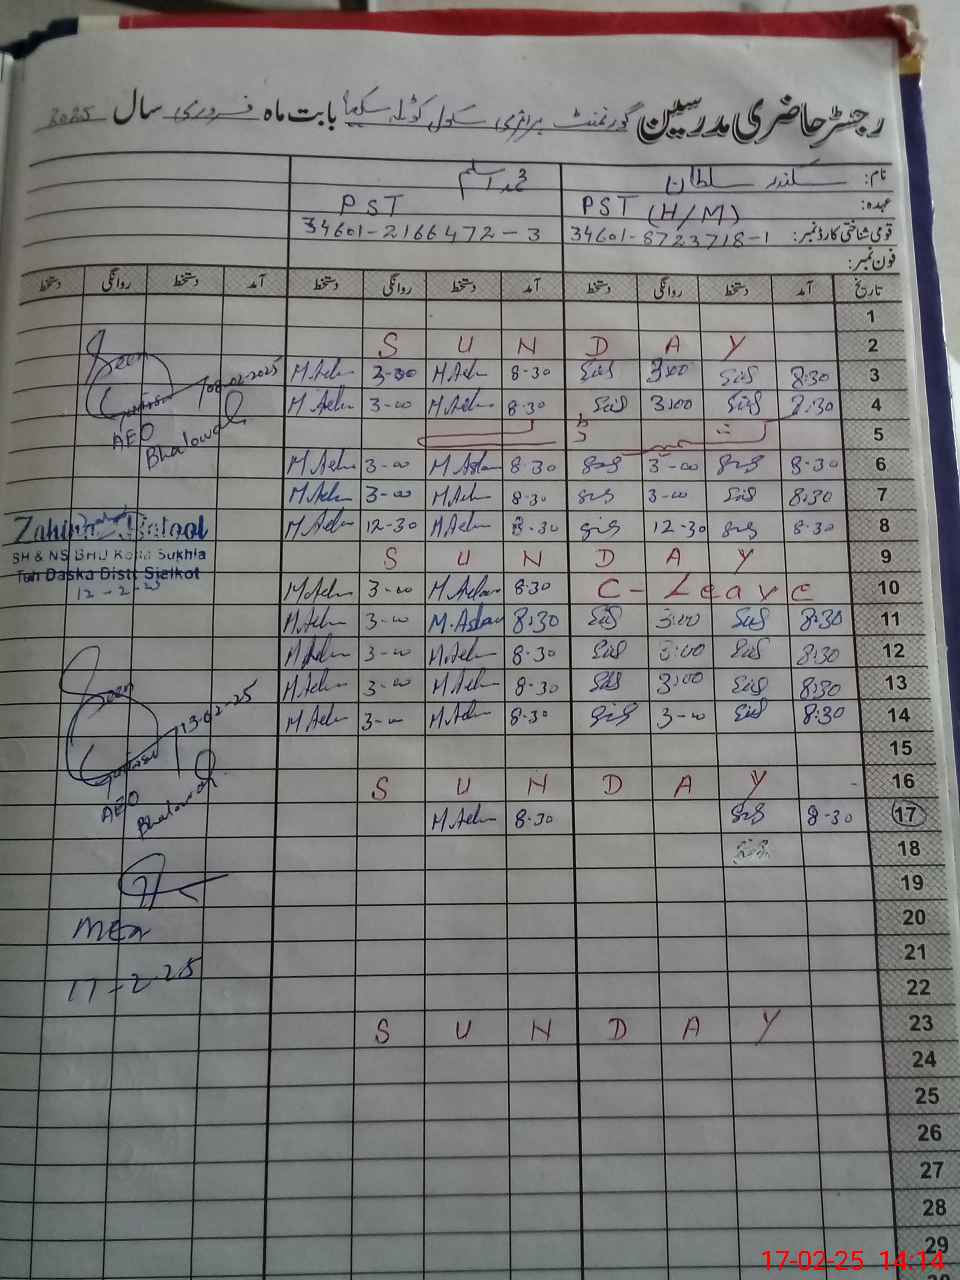 رجسٹر حاضری مدرسین گورنمنٹ پرائمری سکول کوٹلہ سکھیا بابت ماہ فروری سال 2025
نام: سکندر سلطان محمد اسلم
عہدہ: PST (H/M) PST
قومی شناختی کارڈ نمبر: 34601-8723718-1 34601-2166472-3
فون نمبر:
تاریخ آمد دستخط روانگی دستخط آمد دستخط روانگی دستخط آمد دستخط روانگی دستخط
1
S U N D A Y 2
M.Aslm 3-00 M.Aslm 8-30 3:00 8:30 3
M.Aslm 3-00 M.Aslm 8-30 3:00 8:30 4
5
M.Aslm 3-00 M.Aslam 8-30 3-00 8-30 6
M.Aslm 3-00 M.Aslm 8-30 3-00 8:30 7
M.Aslm 12-30 M.Aslm 8-30 12-30 8-30 8
S U N D A Y 9
M.Aslm 3-00 M.Aslam 8-30 C-Leave 10
M.Aslm 3-00 M.Aslam 8-30 3:00 8:30 11
M.Aslm 3-00 M.Aslm 8-30 3:00 8:30 12
M.Aslm 3-00 M.Aslm 8-30 3:00 8:30 13
M.Aslm 3-00 M.Aslm 8-30 3-00 8:30 14
15
S U N D A Y 16
M.Aslm 8-30 8-30 17
18
19
20
21
22
S U N D A Y 23
24
25
26
27
28
29
Seen
08-02-2025
AEO
Bhalowal
Zahida Batool
SH & NS BHU Kotla Sukhla
Teh Daska Distt Sialkot
12-2-25
Seen
13-02-25
AEO
Bhalowal
MEA
17-2-25
17-02-25 14:14